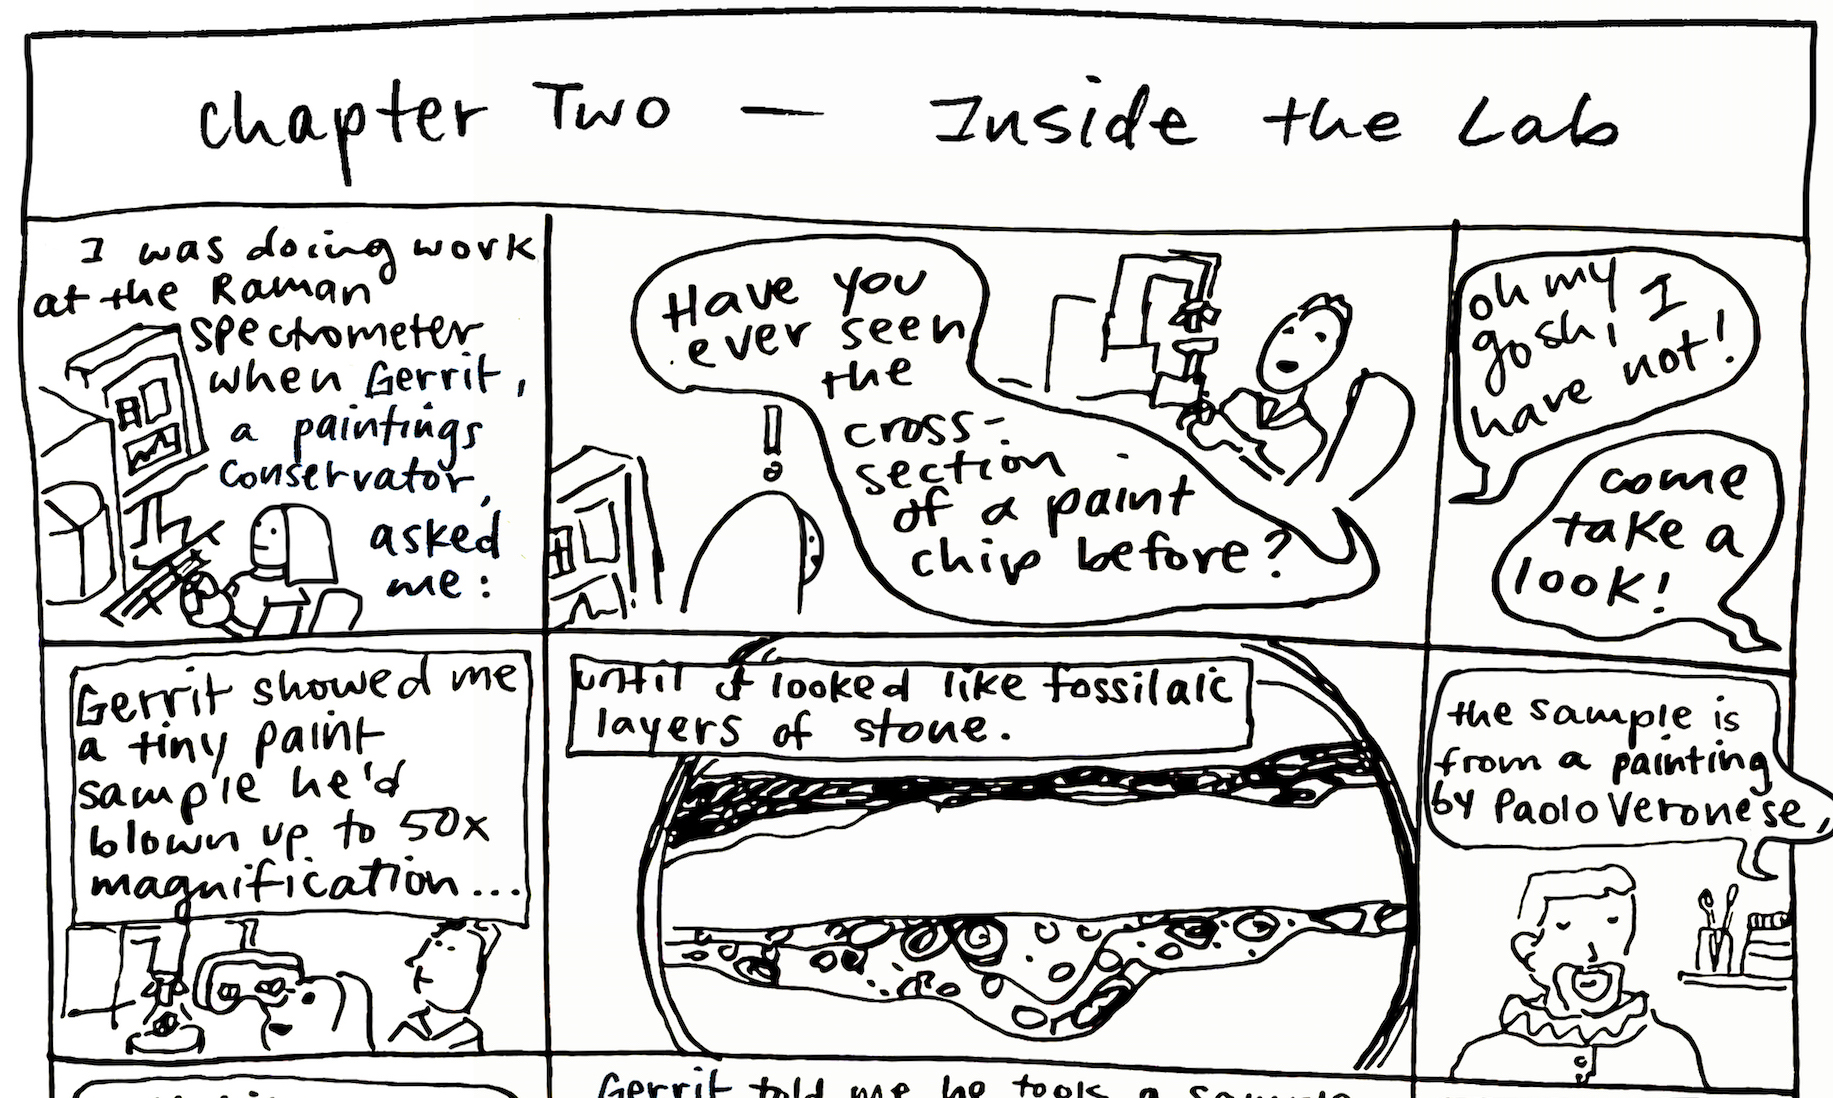 chapter Two — Inside the Lab
I was doing work
at the Raman
spectrometer
when Gerrit,
a paintings
conservator,
asked
me:
Have you
ever seen
the
cross-
section
of a paint
chip before?
oh my
gosh, I
have not!
come
take a
look!
Gerrit showed me
a tiny paint
sample he'd
blown up to 50x
magnification...
until it looked like fossilaic
layers of stone.
the sample is
from a painting
by Paolo Veronese,
Gerrit told me he took a sample